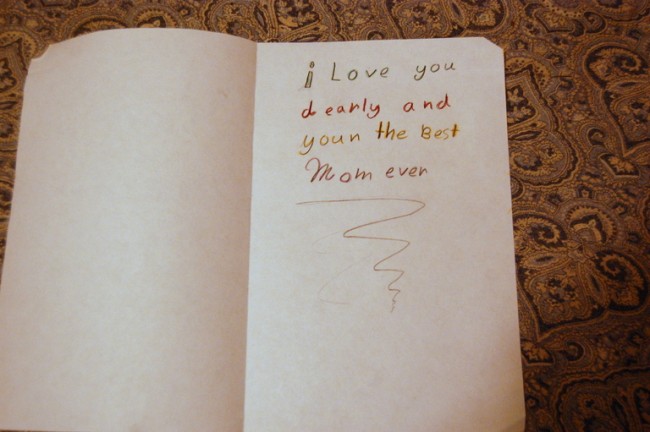 i Love you
dearly and
your the Best
Mom ever